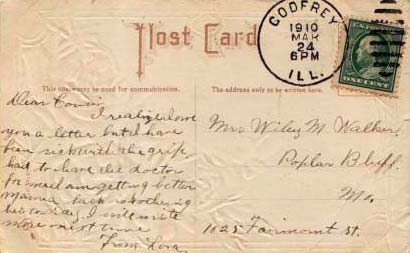 Post Card
GODFREY
1910
MAR
24
6 PM
ILL.
ONE CENT
This space may be used for communication.
The address only to be written here.
Dear
I realize I owe
you a letter but I have
been sick with the grip
had to have the doctor
am getting better
Mamma back is bothering
her today I will write
more next time
From Lora
Mrs Wiley M. Walker
Poplar Bluff.
Mo.
1025 Fairmont St.